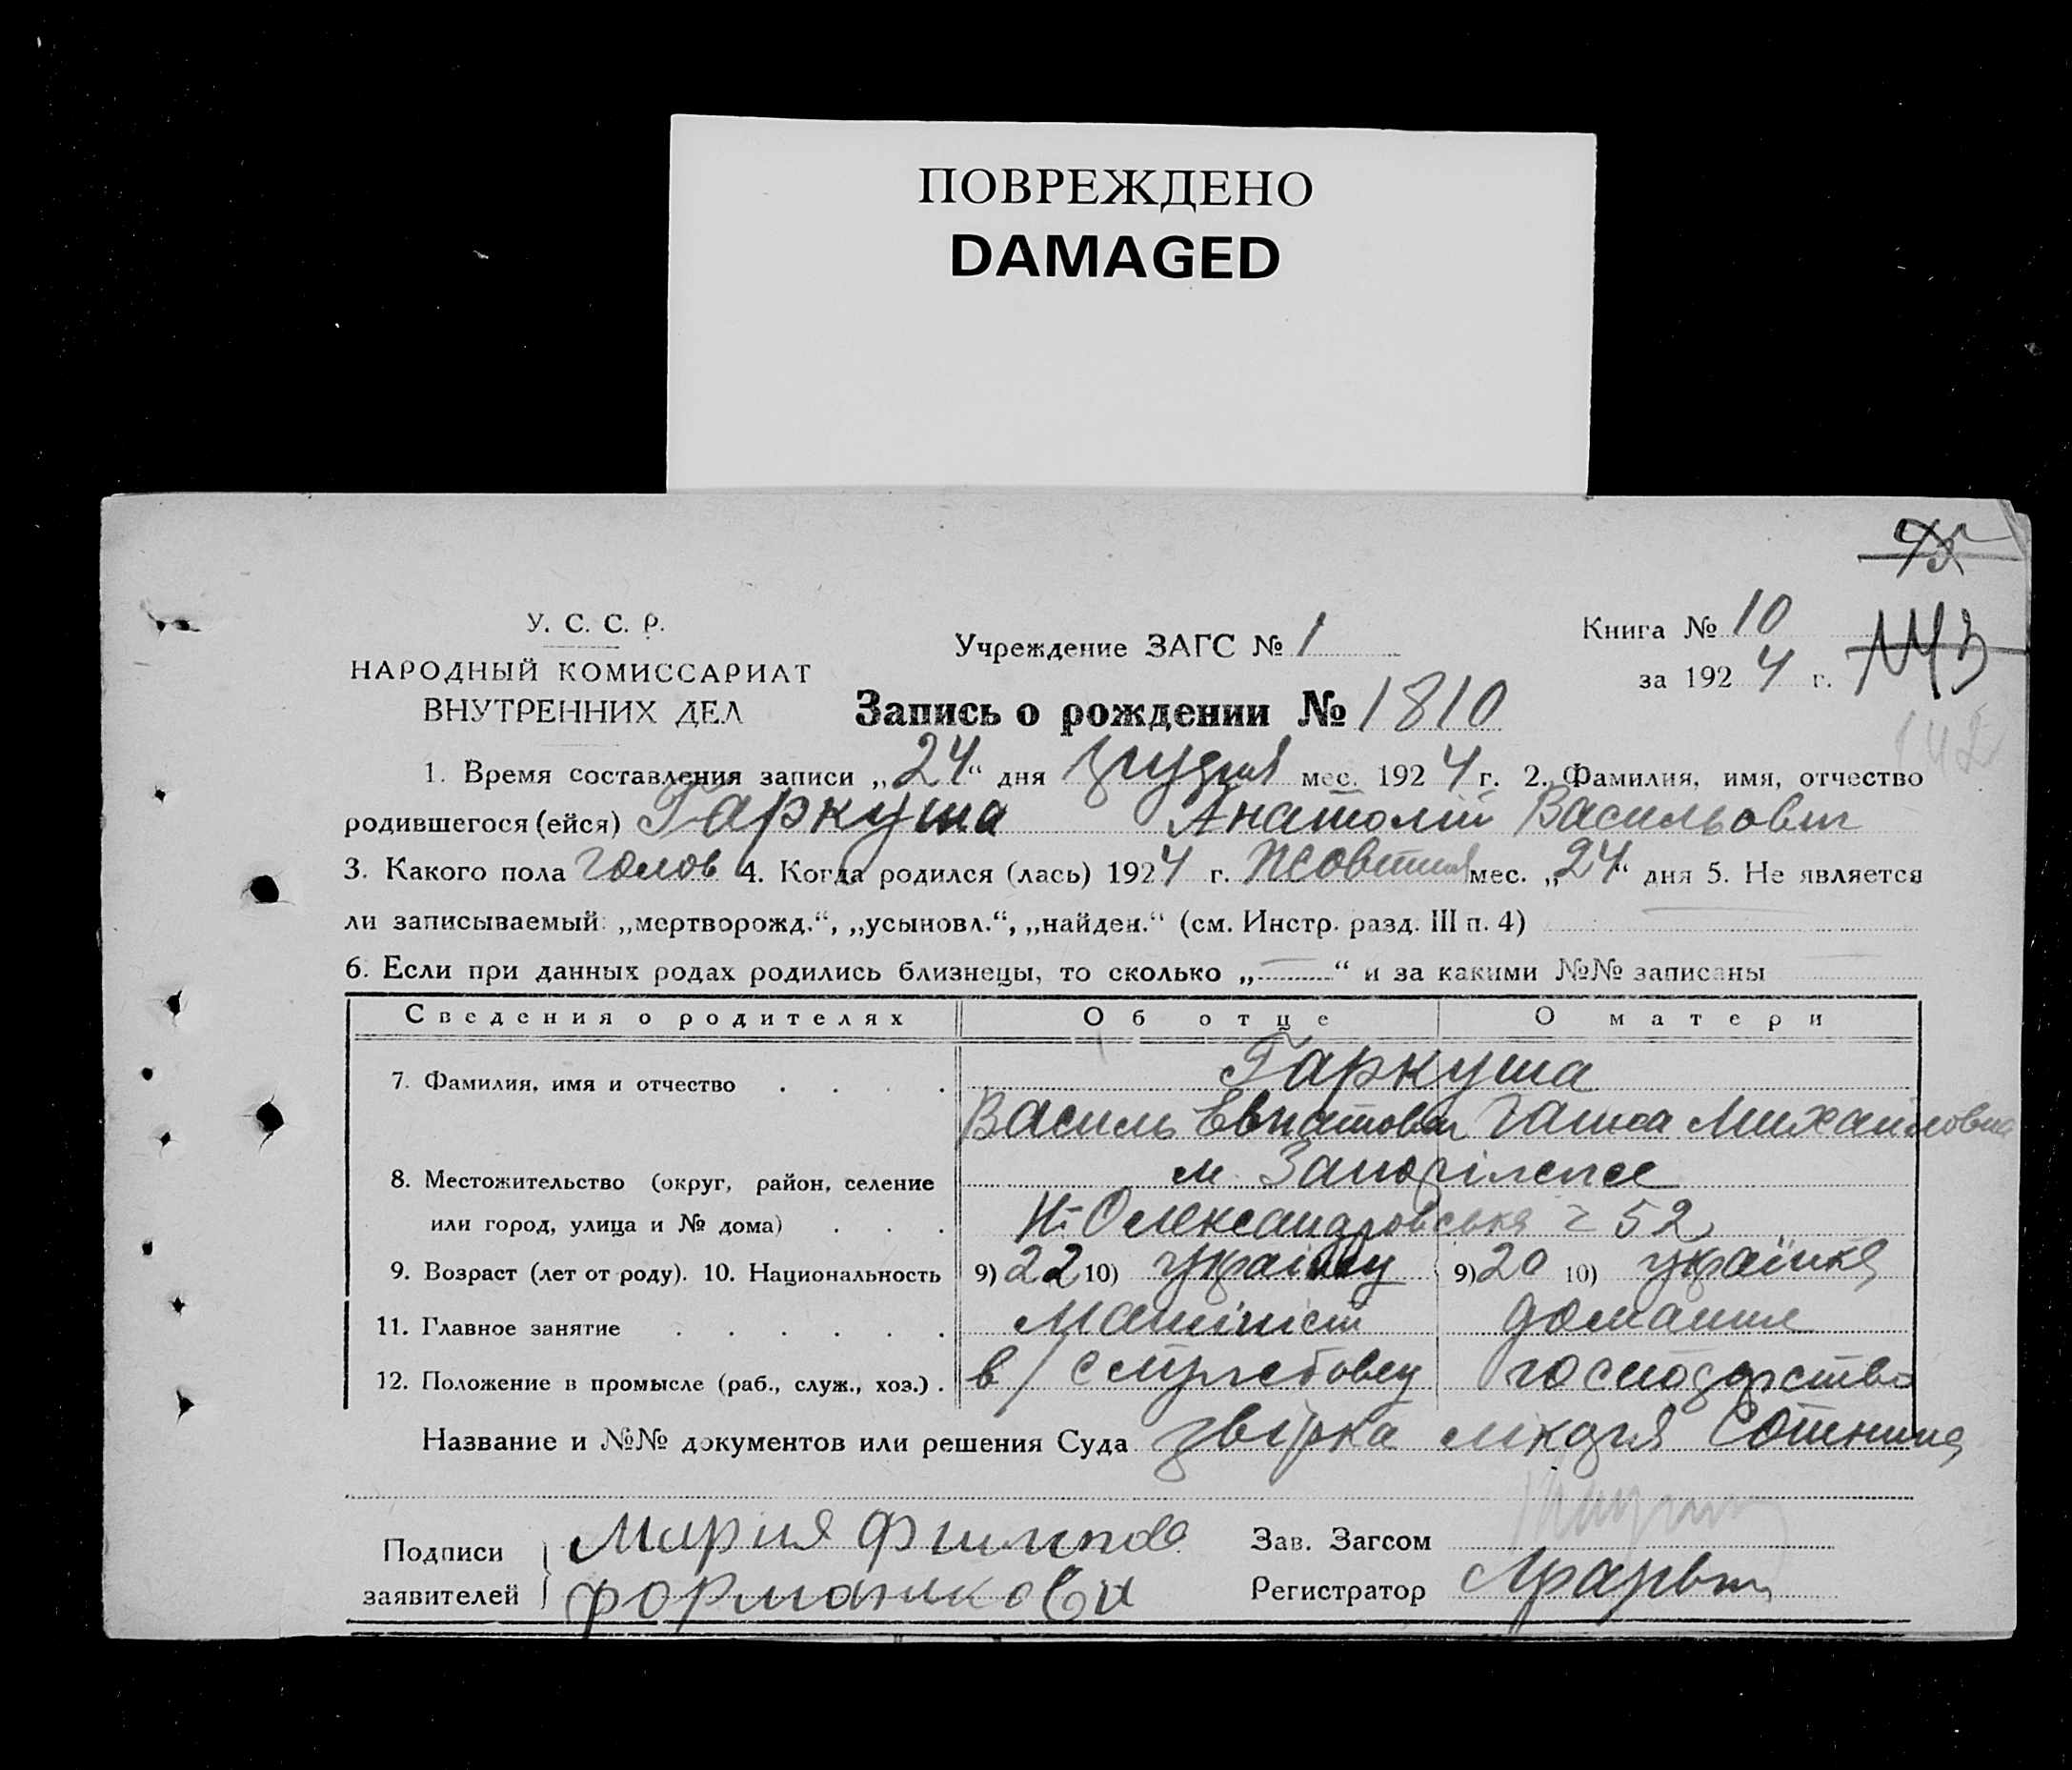 ПОВРЕЖДЕНО
DAMAGED
У. С. С. Р.
НАРОДНЫЙ КОМИССАРИАТ
ВНУТРЕННИХ ДЕЛ
Учреждение ЗАГС № 1
Книга № 10
за 1924 г.
143
142
Запись о рождении № 1810
1. Время составления записи „24“ дня грудня мес. 1924 г. 2. Фамилия, имя, отчество
родившегося (ейся) Гаркуша Анатолій Васильович
3. Какого пола голов 4. Когда родился (лась) 1924 г. Жовтня мес. „24“ дня 5. Не является
ли записываемый: „мертворожд.“, „усыновл.“, „найден.“ (см. Инстр. разд. III п. 4)
6. Если при данных родах родились близнецы, то сколько „—“ и за какими №№ записаны
Сведения о родителях Об отце О матери
7. Фамилия, имя и отчество . . . . Гаркуша
Василь Ганна Михайловна
8. Местожительство (округ, район, селение м. Запоріжжє
или город, улица и № дома) . . . Н-Олександровська 52
9. Возраст (лет от роду). 10. Национальность 9) 22 10) 9) 20 10) українка
11. Главное занятие . . . . . . Машиніст домашнє
12. Положение в промысле (раб., служ., хоз.) . в/службовец господарство
Название и №№ документов или решения Суда звірка лікаря
Подписи
заявителей
Мария
Зав. Загсом
Регистратор